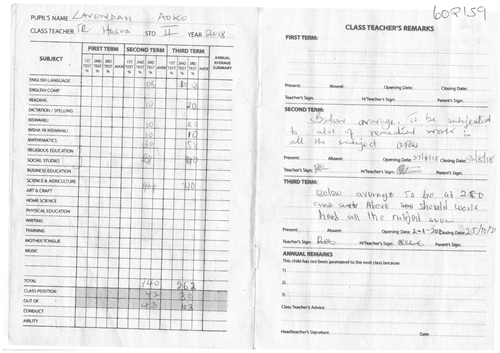 PUPIL'S NAME LAVENDAH AOKO
CLASS TEACHER TR STD II YEAR 2018
SUBJECT FIRST TERM SECOND TERM THIRD TERM ANNUAL AVERAGE SUMMARY
1ST TEST % 2ND TEST % 3RD TEST % AVER 1ST TEST % 2ND TEST % 3RD TEST % AVER 1ST TEST % 2ND TEST % 3RD TEST % AVER
ENGLISH LANGUAGE
ENGLISH COMP
READING
DICTATION / SPELLING 10 20
KISWAHILI
INSHA YA KISWAHILI 10
MATHEMATICS 10 10
RELIGIOUS EDUCATION 30 58
SOCIAL STUDIES
BUSINESS EDUCATION
SCIENCE & AGRICULTURE 40
ART & CRAFT
HOME SCIENCE
PHYSICAL EDUCATION
WRITING
TRAINING
MOTHER TONGUE
MUSIC
TOTAL 140 262
CLASS POSITION 42 30
OUT OF 43 43
CONDUCT
ABILITY
602/59
CLASS TEACHER'S REMARKS
FIRST TERM:
Present: Absent: Opening Date: Closing Date:
Teacher's Sign: H/Teacher's Sign: Parent's Sign:
SECOND TERM:
Below average. To be subjected
to alot of remedial work in
all the subject area
Present: Absent: Opening Date: Closing Date:
Teacher's Sign: H/Teacher's Sign: Parent's Sign:
THIRD TERM:
Below average To be at 250
and Above should work
hard all the subject area
Present: Absent: Opening Date: Closing Date:
Teacher's Sign: H/Teacher's Sign: Parent's Sign:
ANNUAL REMARKS
This child has not been promoted to the next class because
1)
2)
3)
Class Teacher's Advice
Headteacher's Signature Date